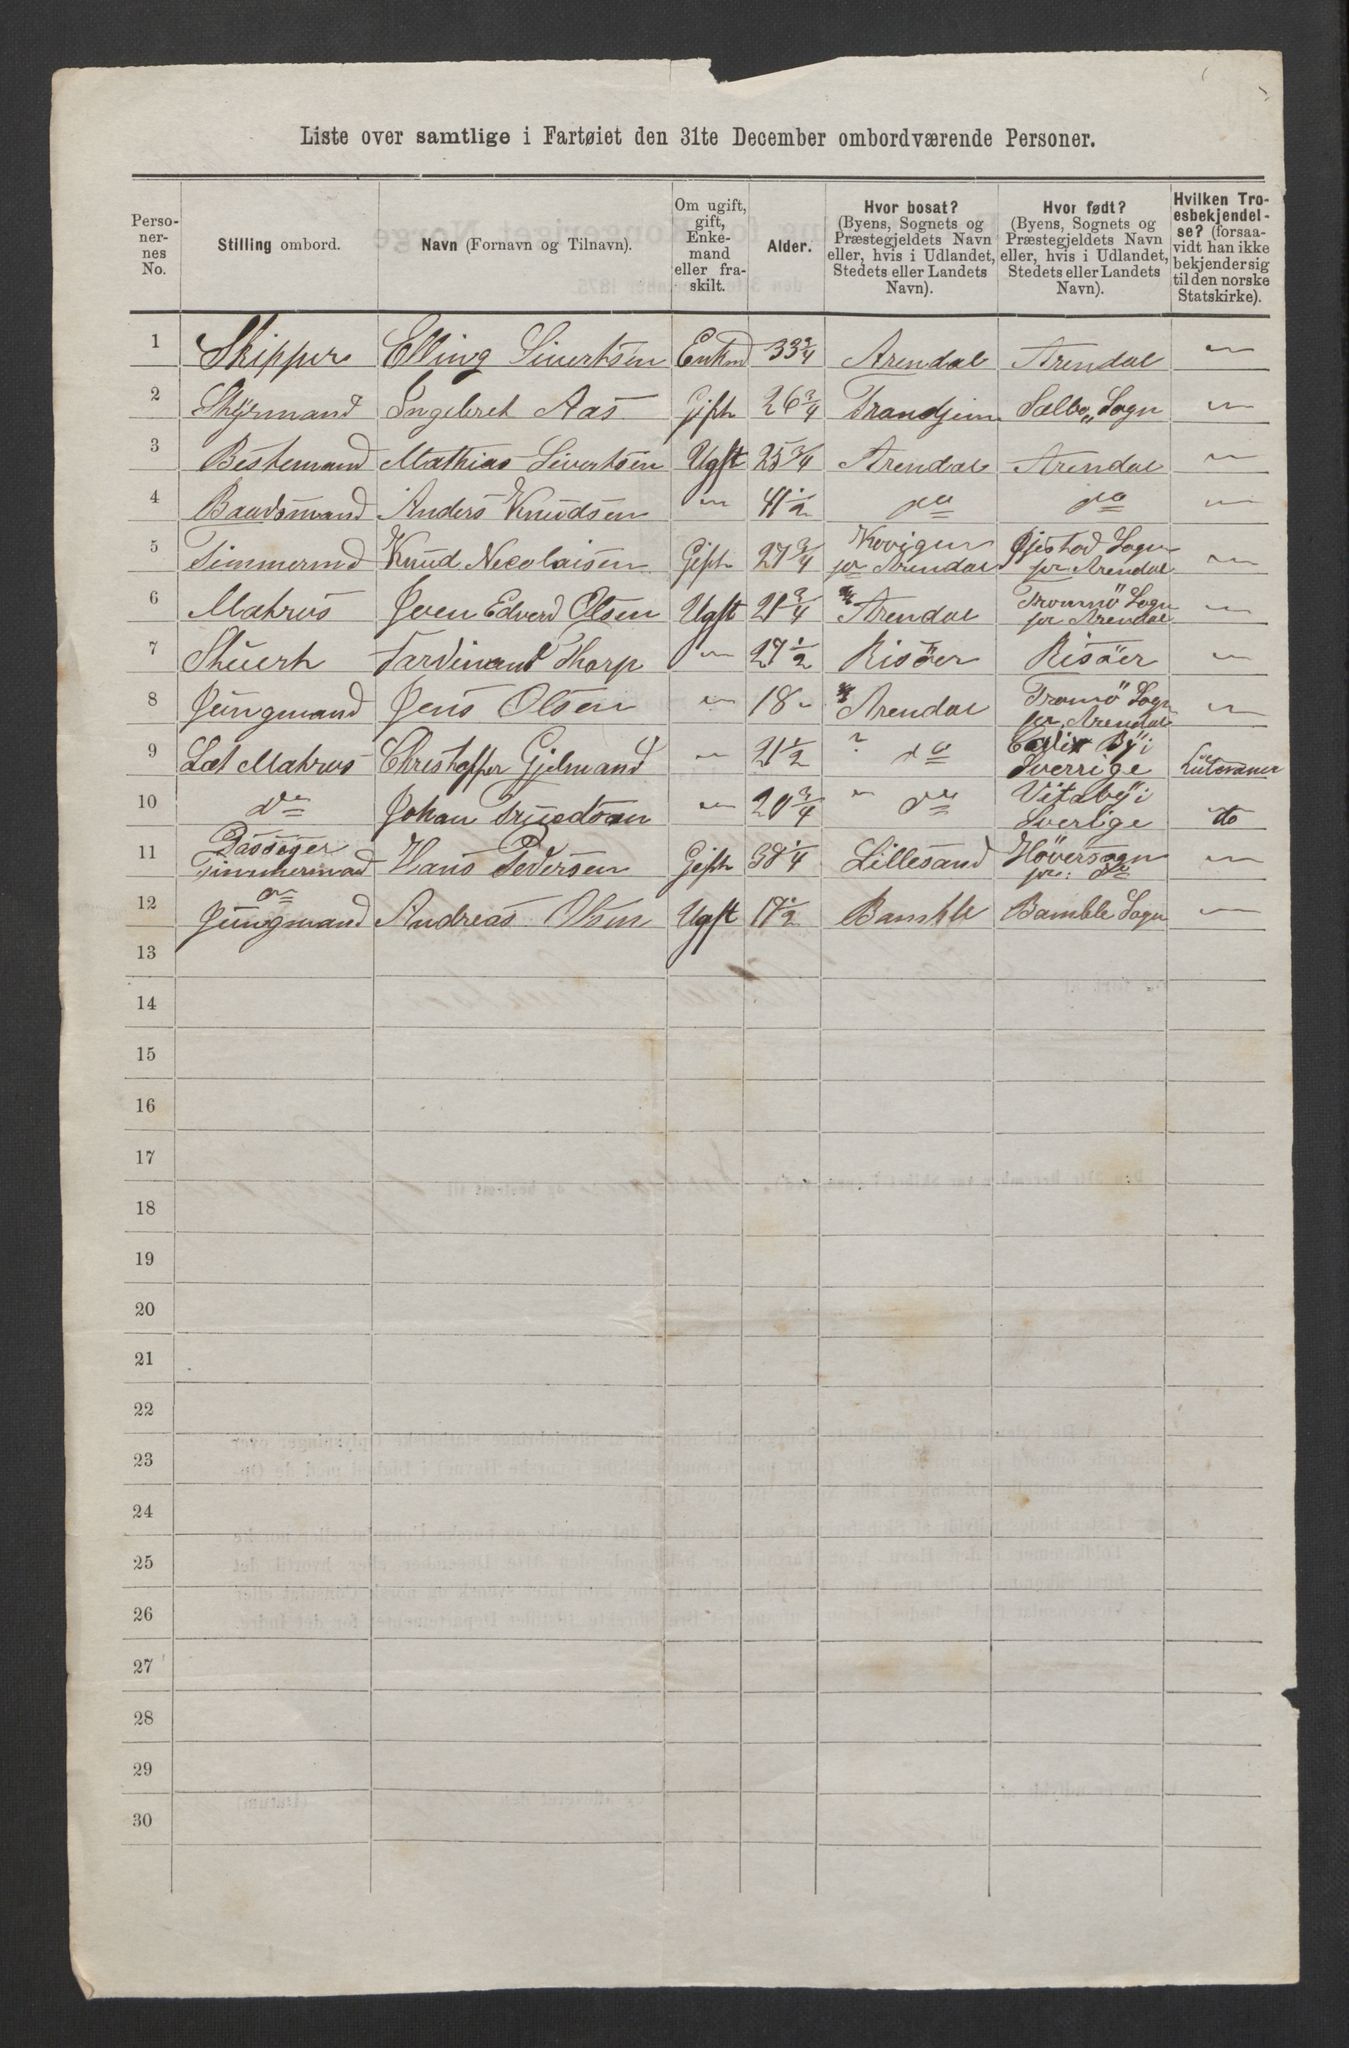 Liste over samtlige i Fartøiet den 31te December ombordværende Personer.
Personernes No. | Stilling ombord. | Navn (Fornavn og Tilnavn). | Om ugift, gift, Enkemand eller fraskilt. | Alder. | Hvor bosat? (Byens, Sognets og Præstegjeldets Navn eller, hvis i Udlandet, Stedets eller Landets Navn). | Hvor født? (Byens, Sognets og Præstegjeldets Navn eller, hvis i Udlandet, Stedets eller Landets Navn). | Hvilken Troesbekjendelse? (forsaavidt han ikke bekjender sig til den norske Statskirke).
1 Skipper Elling Sivertsen Enkmd 33 3/4 Arendal Arendal "
2 Styrmand Ingebret Aas Gift 26 3/4 Trondjem Sælbo Sogn "
3 Bestemand Mathias Sivertsen Ugft 25 3/4 Arendal Arendal "
4 Baadsmand Anders Knudsen " 41 1/2 do do "
5 Timmermd Knud Nicolaisen Gift 27 3/4 Kovigen pr Arendal Øiestad Sogn pr Arendal "
6 Matros Jven Edverd Olsen Ugft 21 3/4 Arendal Tromø Sogn pr Arendal "
7 Stuert Fardinant Thorp " 27 1/2 Risöer Risöer "
8 Jungmand Jens Olsen " 18 " Arendal Tromö Sogn pr Arendal "
9 Let Matros Christoffer Gjelmand " 21 1/2 " do By i Sverrige Luteraner
10 do Johan " 20 3/4 " do Vitaby i Sverige do
11 Passager Timmermand Hans Pedersen Gift 38 1/4 Lillesand Høversogn pr: do "
12 do Jungmand Andreas Olsen Ugft 17 1/2 Bamble Bamble Sogn "
13
14
15
16
17
18
19
20
21
22
23
24
25
26
27
28
29
30